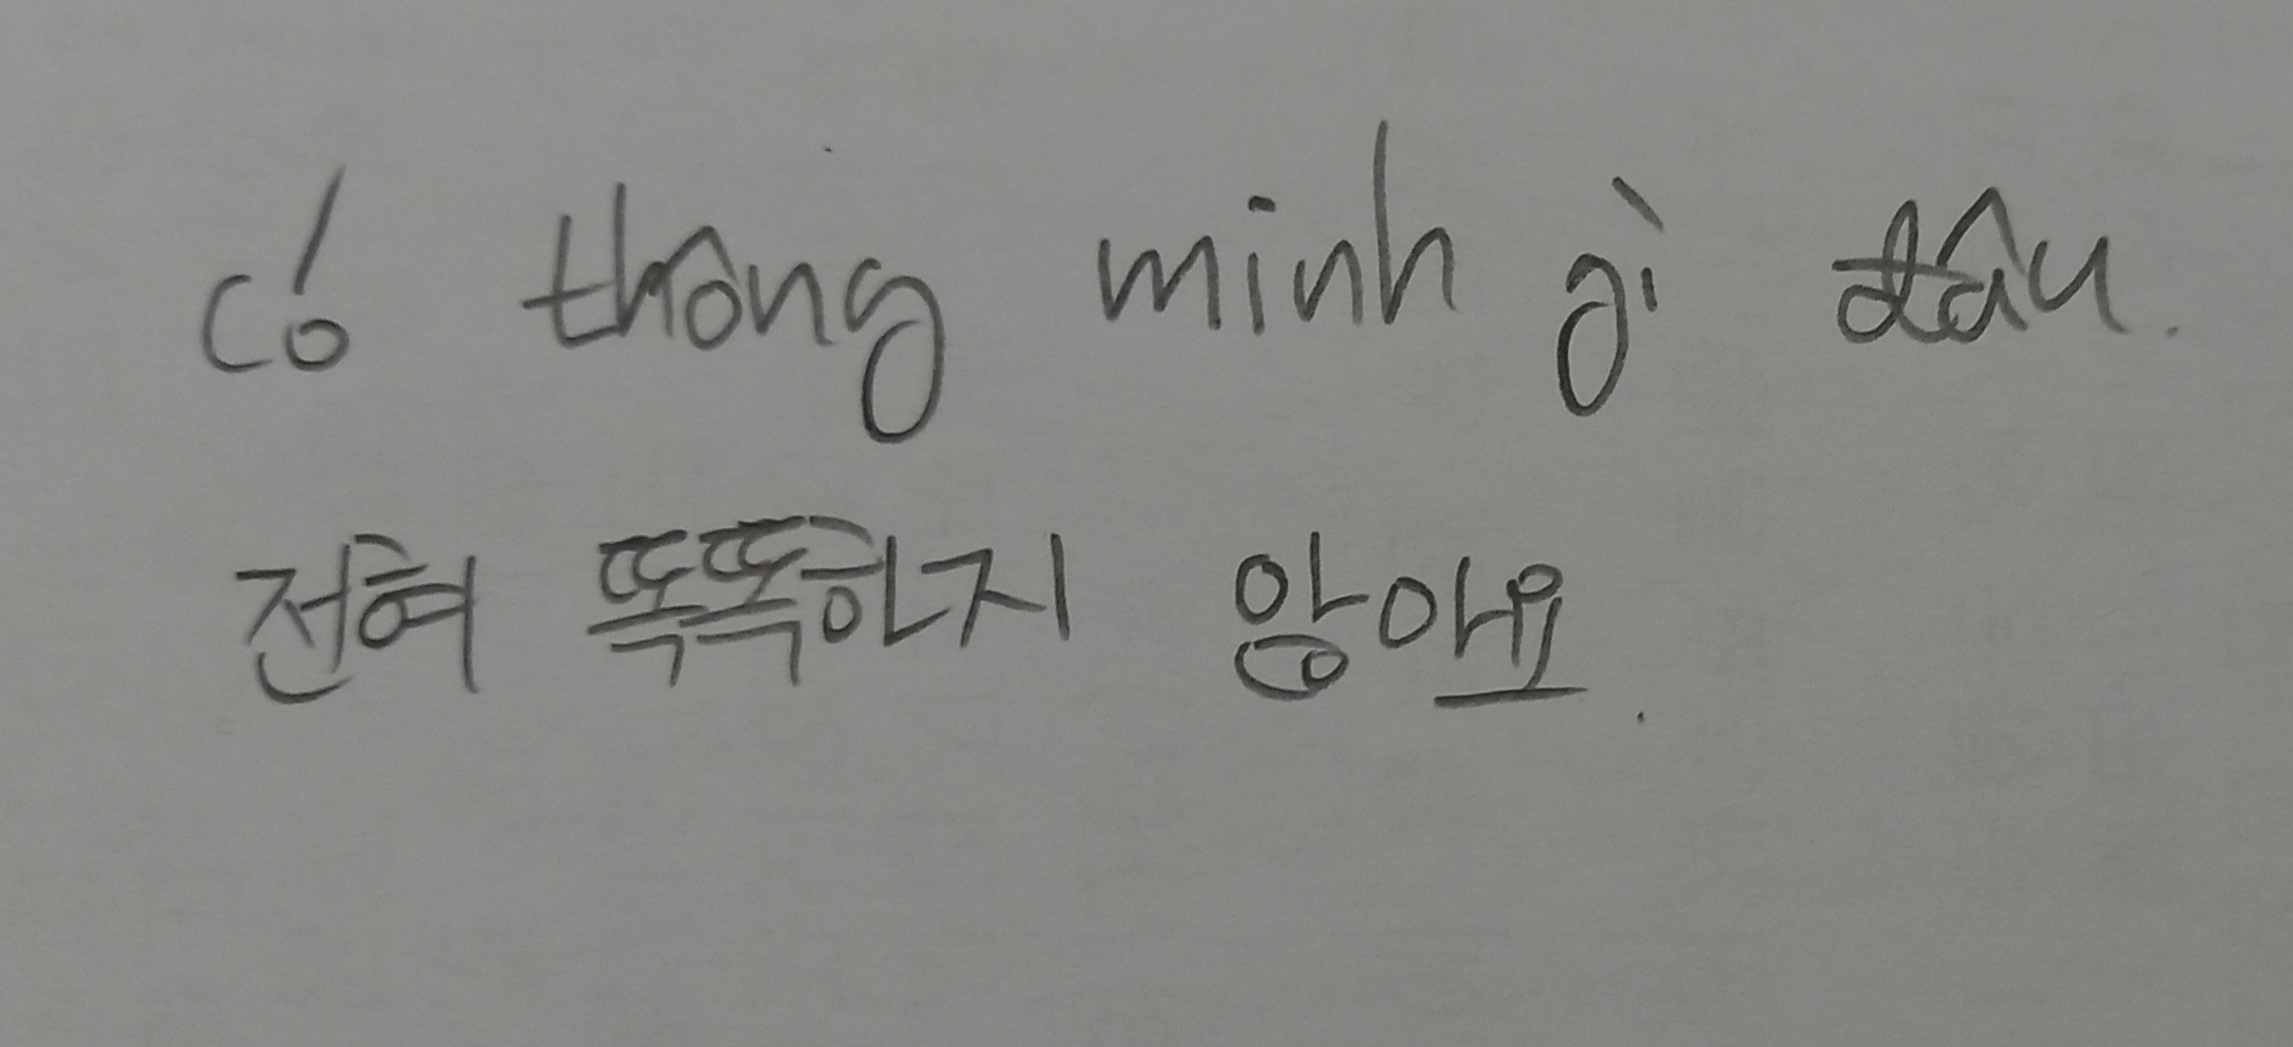 có thông minh gì đâu.
전혀 똑똑하지 않아요.